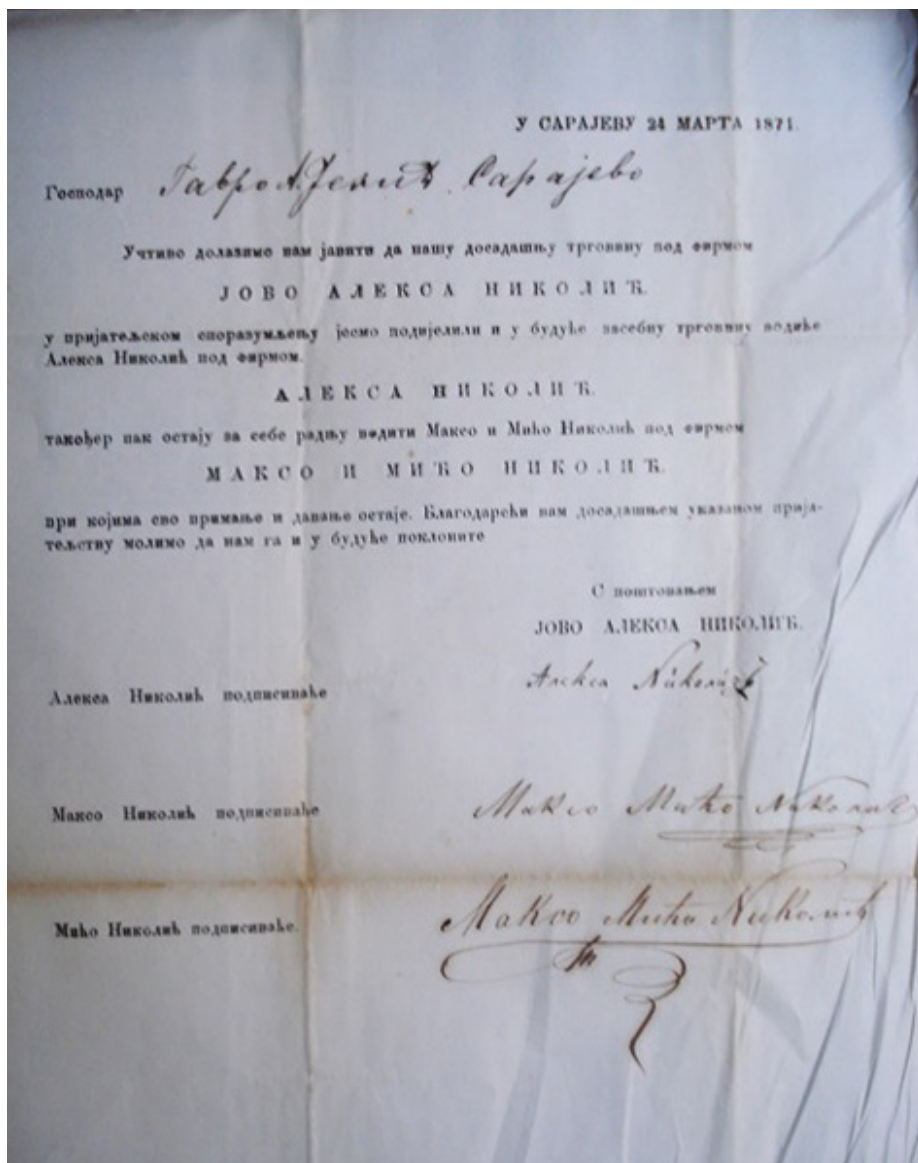 У САРАЈЕВУ 24 МАРТА 1871.
Господар Гавро А. Јелић Сарајево
Учтиво долазимо вам јавити да нашу досадашњу трговину под фирмом
ЈОВО АЛЕКСА НИКОЛИЋ.
у пријатељском споразумљењу јесмо подијелили и у будуће засебну трговину водиће
Алекса Николић под фирмом.
АЛЕКСА НИКОЛИЋ.
такођер пак остају за себе радњу водити Максо и Мићо Николић под фирмом
МАКСО И МИЋО НИКОЛИЋ.
при којима сво примање и давање остаје. Благодарећи вам досадашњем указаном прија-
тељству молимо да нам га и у будуће поклоните
С поштовањем
ЈОВО АЛЕКСА НИКОЛИЋ.
Алекса Николић подписиваће
Алекса Николић
Максо Николић подписиваће
Максо Мићо Николић
Мићо Николић подписиваће.
Максо Мићо Николић